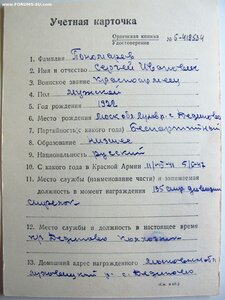 WWW.FORUMS-SU.COM
Учетная карточка
Орденская книжка
Удостоверение
№ Б-419534
1. Фамилия Пономарев
2. Имя и отчество Сергей Иванович
3. Воинское звание Красноармеец
4. Пол Мужской
5. Год рождения 1922
6. Место рождения Московская с. Дединово
7. Партийность (с какого года) Беспартийный
8. Образование низшее
9. Национальность русский
10. С какого года в Красной Армии
11. Место службы (наименование части) и занимаемая
должность в момент награждения 135 стр дивизии
стрелок
12. Место службы и должность в настоящее время
Дединово колхозник
13. Домашний адрес награжденного Московская
Луховицкий с. Дединово